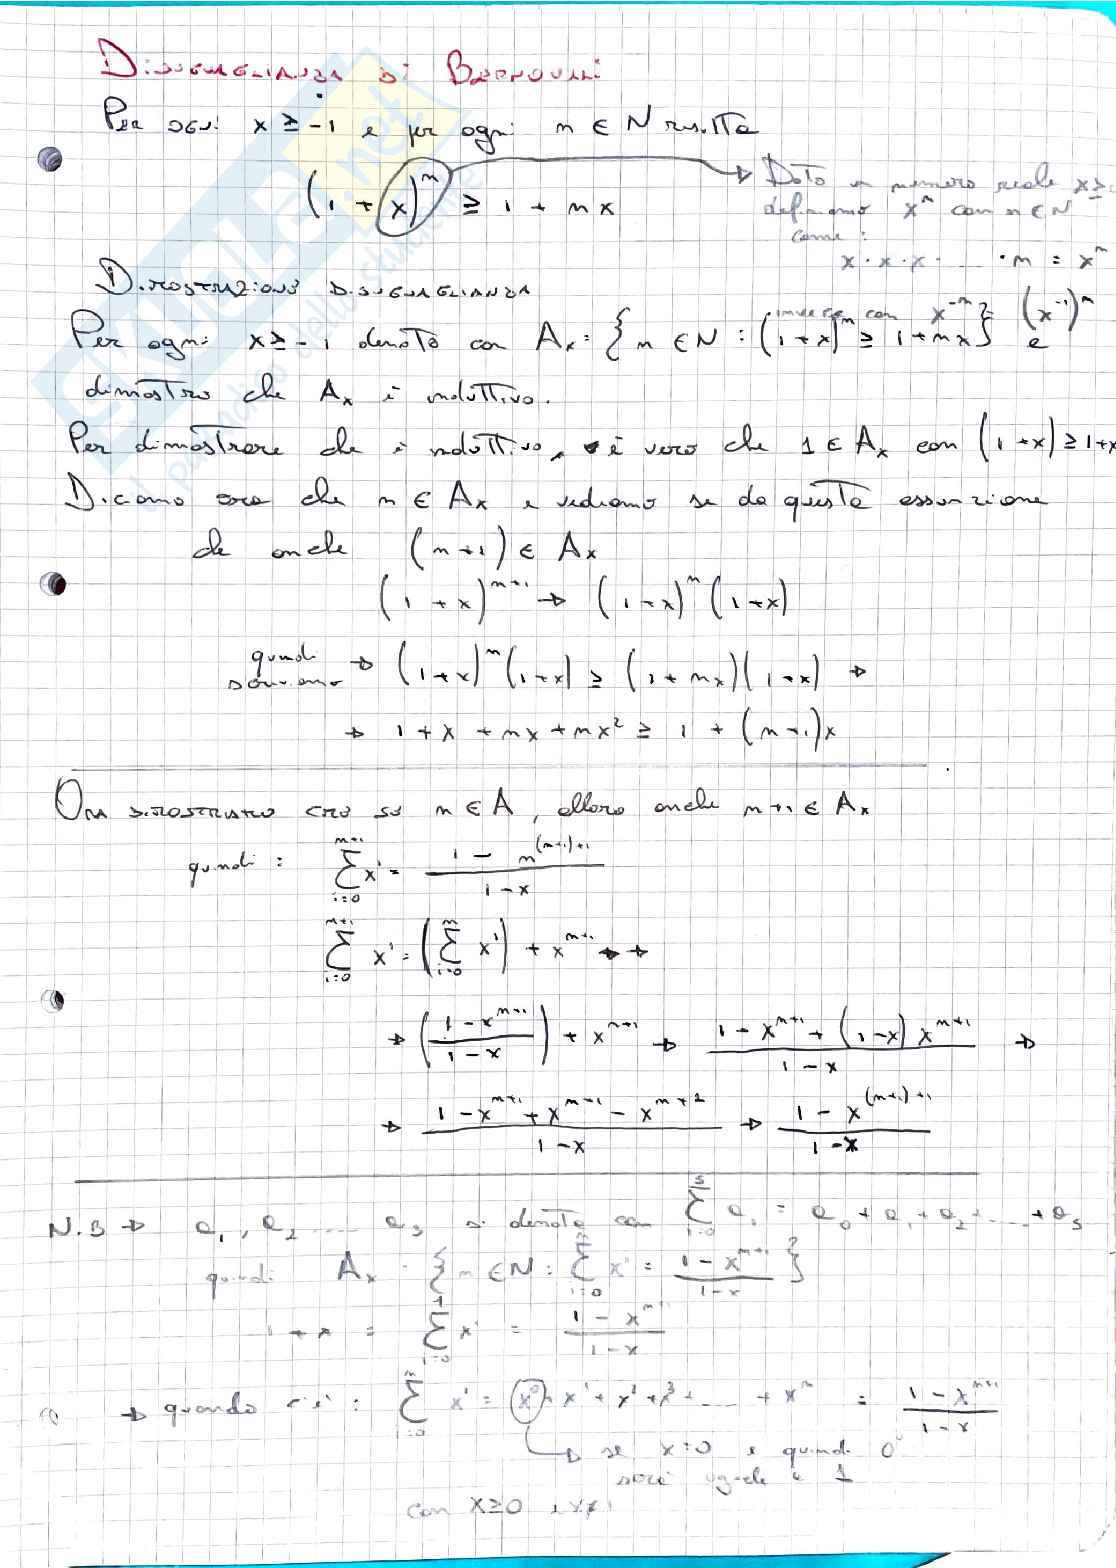 Disuguaglianza di Bernoulli
Per ogni x ≥ -1 e per ogni n ∈ N risulta
(1 + x)^n ≥ 1 + nx
Dato un numero reale x ≥
definiamo x^n con n ∈ N
come:
x · x · x · ... · n = x^n
inverse con x^-n = (x^-1)^n
Dimostrazione disuguaglianza
Per ogni x ≥ -1 denoto con A_x = {n ∈ N : (1+x)^n ≥ 1+nx} e
dimostro che A_x è induttivo.
Per dimostrare che è induttivo, è vero che 1 ∈ A_x con (1+x) ≥ 1+x
Diciamo ora che n ∈ A_x e vediamo se da questa assunzione
da anche (n+1) ∈ A_x
(1+x)^n+1 → (1+x)^n (1+x)
quindi scriviamo → (1+x)^n (1+x) ≥ (1+nx)(1+x) →
→ 1 + x + nx + nx² ≥ 1 + (n+1)x
Ora dimostriamo che se n ∈ A, allora anche n+1 ∈ A_x
quindi : ∑_{i=0}^{n+1} x^i = (1 - n^{(n+1)+1}) / (1-x)
∑_{i=0}^{n+1} x^i = (∑_{i=0}^{n} x^i) + x^{n+1} →
→ ((1-x^{n+1}) / (1-x)) + x^{n+1} → (1-x^{n+1} + (1-x) x^{n+1}) / (1-x) →
→ (1-x^{n+1} + x^{n+1} - x^{n+2}) / (1-x) → (1 - x^{(n+1)+1}) / (1-x)
N.B → a_1, a_2 ... a_s si denota con ∑_{i=0}^{s} a_i = a_0 + a_1 + a_2 + ... + a_s
quindi A_x = {n ∈ N : ∑_{i=0}^{n} x^i = (1 - x^{n+1}) / (1-x)}
1 + x = ∑_{i=0}^{1} x^i = (1 - x^{n+1}) / (1-x)
→ quando c'è : ∑_{i=0}^{n} x^i = x^0 + x^1 + x^2 + x^3 + ... + x^n = (1 - x^{n+1}) / (1-x)
→ se x=0 e quindi 0^0
sarà uguale a 1
con x ≥ 0